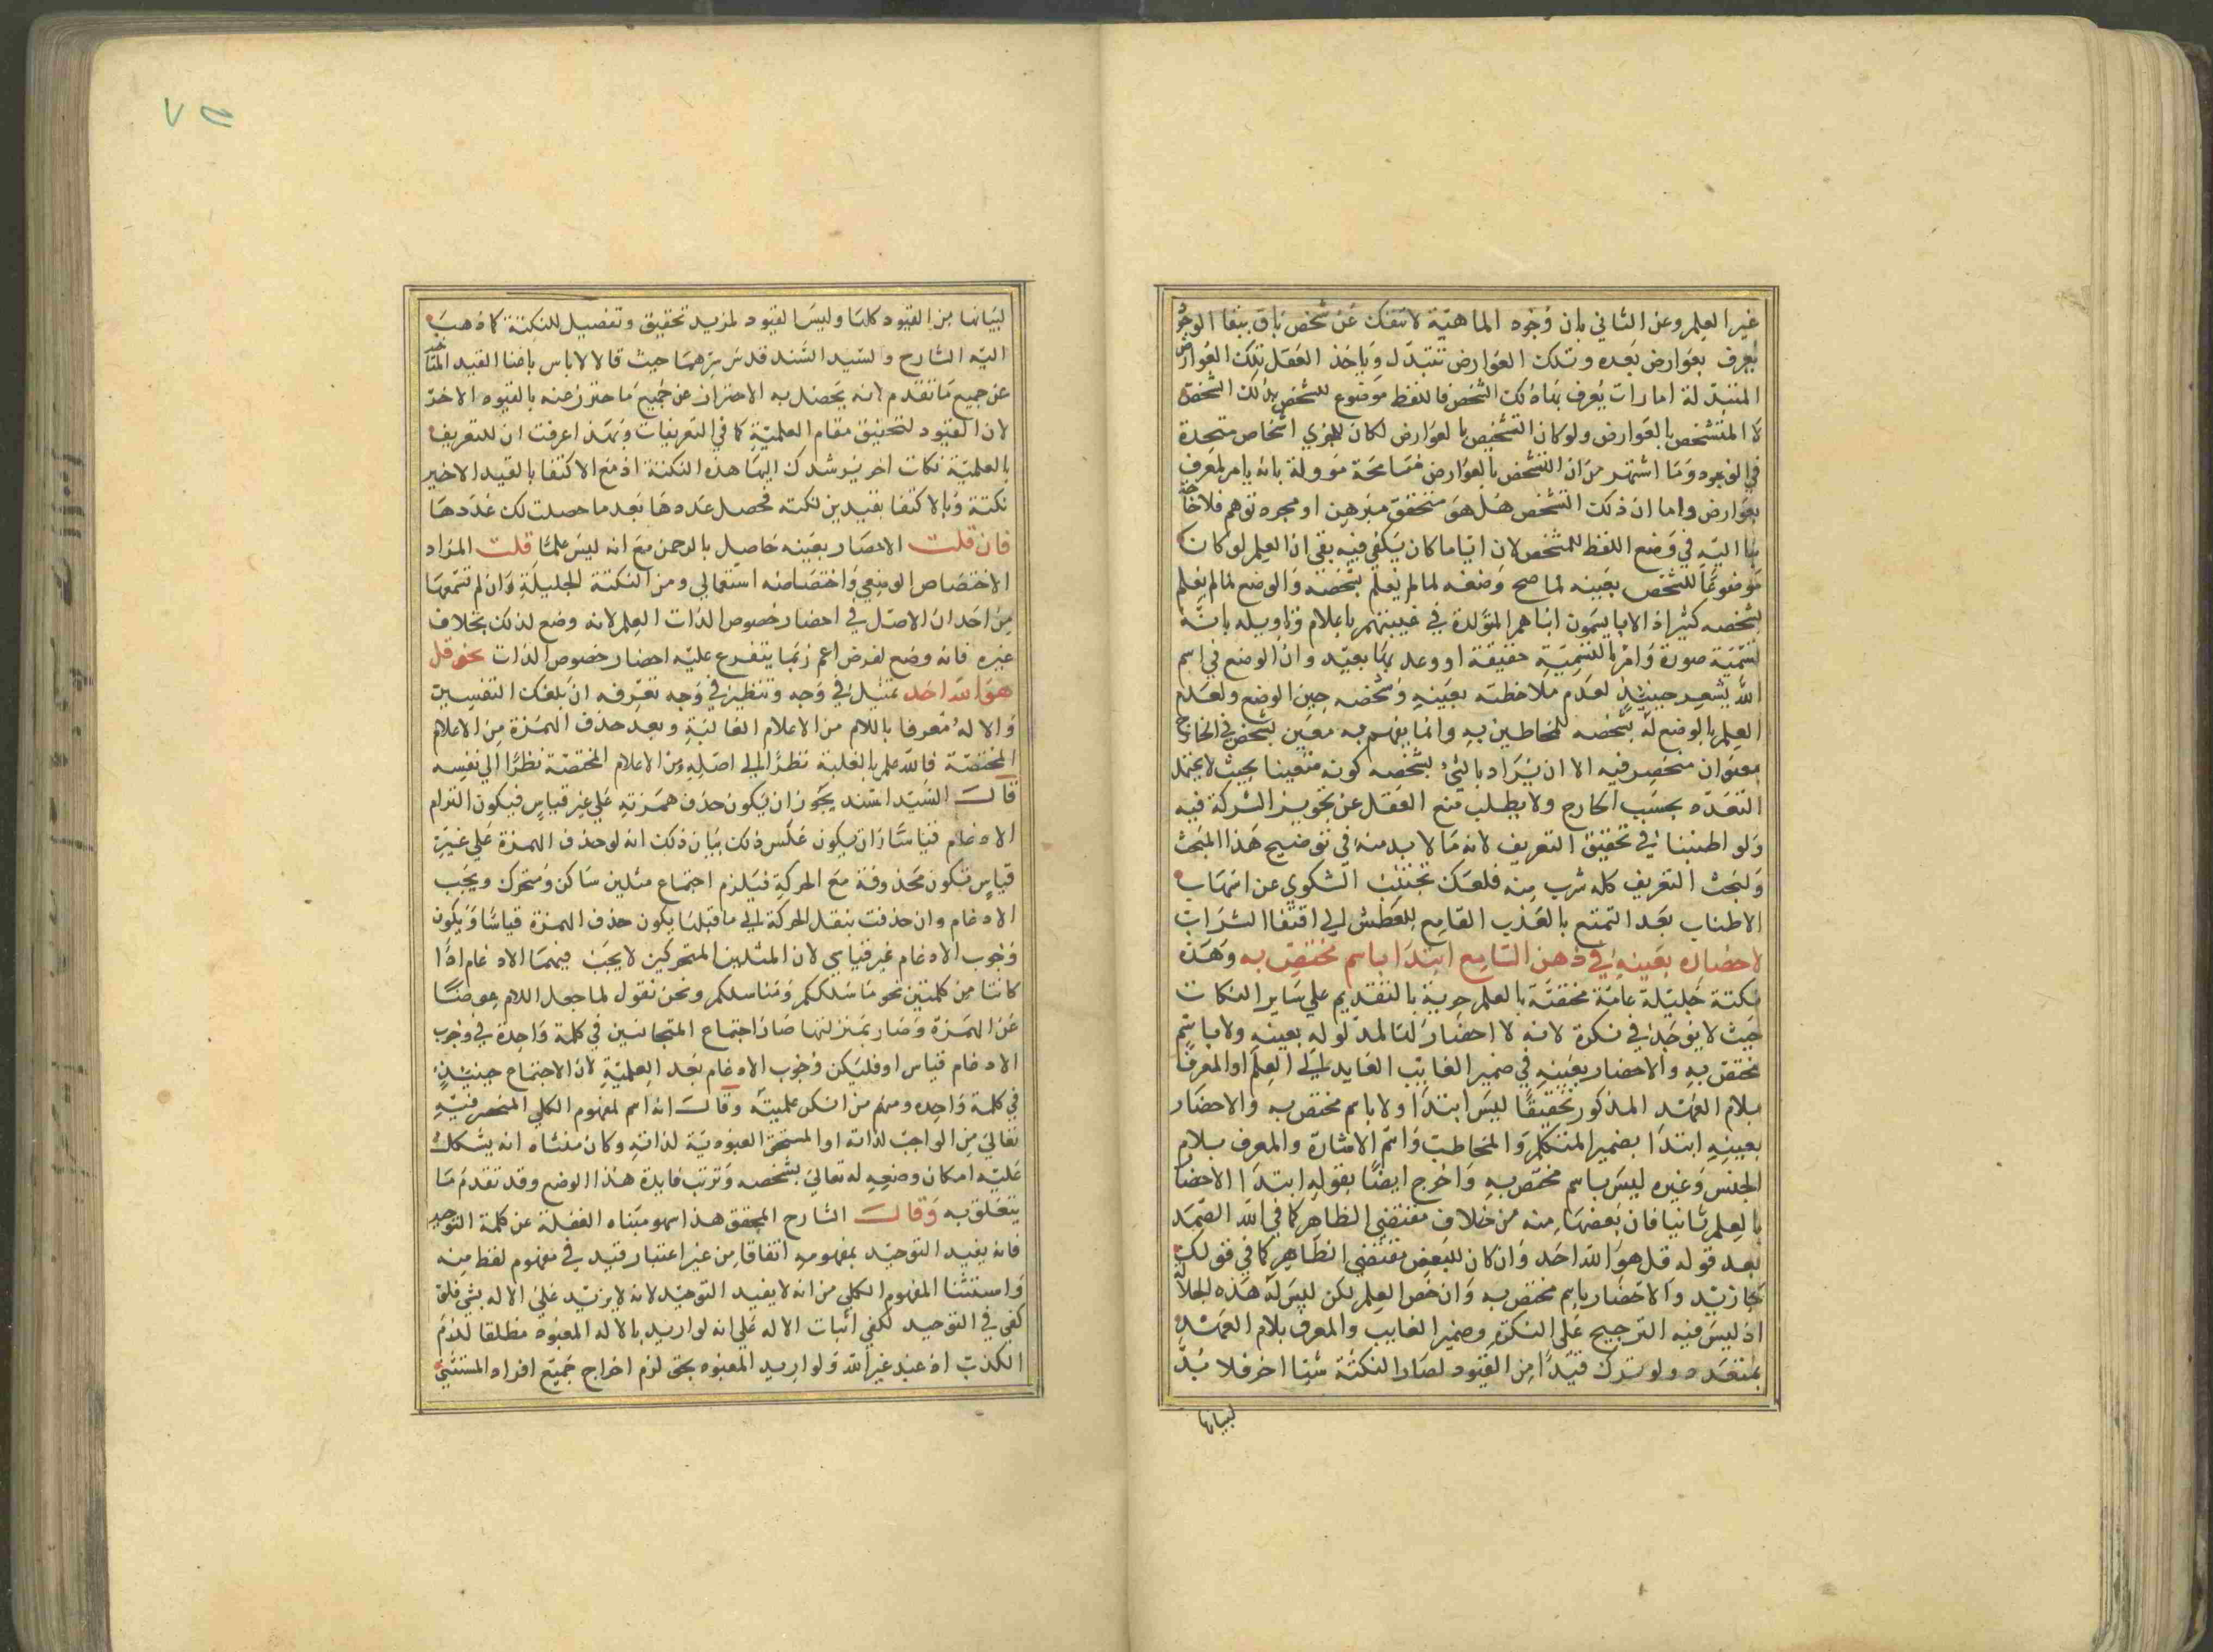 غير العلم وعن الثاني بان وجود الماهية لا تنفك عن تشخص باق ببقا الوجود
يعرف بعوارض بعده وتلك العوارض تتبدل وياخذ العقل تلك العوارض
المتبدلة امارات يعرف بها ذلك الشخص فاللفظ موضوع للشخص بذلك التشخص
لا المتشخص بالعوارض ولو كان التشخص بالعوارض لكان للجزي اشخاص متحدة
في الوجود وما اشتهر من ان التشخص بالعوارض فمسامحة مووولة بانه بامر يعرف
بعوارض واما ان ذلك التشخص هل هو متحقق مبرهن او مجرد توهم فلا حاجة
بنا اليه في وضع اللفظ للمشخص لان اياما كان يكفي فيه بقي ان العلم لو كان
موضوعا للشخص بعينه لما صح وضعه لما لم يعلم بشخصه والوضع لما لم يعلم
بشخصه كثير اذ الابا يسمون ابناهم المتولدة في غيبتهم باعلام وتاويله بانه
تسمية صورة وامر بالتسمية حقيقة او وعد بها بعيد وان الوضع في اسم
الله يشعر حينئذ لعدم ملاحظته بعينه وشخصه حين الوضع ولعدم
العلم بالوضع له بشخصه للمخاطبين به وانما يفهم به معين بشخص في الخارج
بعنوان منحصر فيه الا ان يراد بالشي بشخصه كونه متعينا بحيث لا يحتمل
التعدد بحسب الخارج ولا يطلب منع العقل عن تجويز الشركة فيه
ولو اطنبنا في تحقيق التعريف لانه مما لا بد منه في توضيح هذا المبحث
ولبحث التعريف كله شرب منه فلعلك تجتنب الشكوي عن اسهاب
الاطناب بعد التمتع بالعذب القامع للعطش لي اقتفا الشراب
لاحضاره بعينه في ذهن السامع ابتدا باسم مختص به وهذه
نكتة جليلة عامة مختصة بالعلم حرية بالتقديم علي ساير النكات
حيث لا يوجد في نكرة لانه لا احضار لها لمدلوله بعينه ولا باسم
مختص به والاحضار بعينه في ضمير الغايب العايد الي العلم او المعرف
بلام العهد المذكور تحقيقا ليس ابتدا ولا باسم مختص به والاحضار
بعينه ابتدا بضمير المتكلم والمخاطب واسم الاشارة والمعرف بلام
الجنس وغيره ليس باسم مختص به واخرج ايضا بقوله ابتدا الاحضار
بالعلم ثانيا فان بعضها منه من خلاف مقتضي الظاهر كما في الله الصمد
بعد قوله قل هو الله احد وان كان للبعض مقتضي الظاهر كما في قولك
جا زيد والاحضار باسم مختص به وان خص العلم لكن ليس له هذه الجلالة
اذ ليس فيه الترجيح علي النكرة وضمير الغايب والمعرف بلام العهد
بمتعدد ولو ترك قيدا من القيود لصار النكتة شيا اخر فلا بد
لبيانها
٧٥
لبيانها من القيود كلها وليس القيود لمزيد تحقيق وتفصيل للنكتة كما ذهب
اليه الشارح والسيد السند قدس سرهما حيث قالا لا باس باغنا القيد المتاخر
عن جميع ما تقدم لانه يحصل به الاحتراز عن جميع ما حترز عنه بالقيود الاخر
لان القيود لتحقيق مقام العلمية كما في التعريفات وبهذا عرفت ان للتعريف
بالعلمية نكات اخر يرشدك اليها هذه النكتة اذ مع الاكتفا بالقيد الاخير
نكتة وبالاكتفا بقيدين نكتة فحصل عددها بعد ما حصلت لك عددها
فان قلت الاحضار بعينه حاصل بالرحمن مع انه ليس علما قلت المراد
الاختصاص الوضعي واختصاصه استعمالي ومن النكتة الجليلة وان لم تسمعها
من احد ان الاصل في احضار خصوص الذات العلم لانه وضع لذلك بخلاف
غيره فانه وضع لغرض اعم ربما يتفرع عليه احضار خصوص الذات نحو قل
هو الله احد تمثيل في وجه وتنظير في وجه تعرفه ان بلغك التفسير
والاله معرفا باللام من الاعلام الغالبة وبعد حذف الهمزة من الاعلام
المختصة فالله علم بالغلبة نظرا الي اصله ومن الاعلام المختصة نظرا الي نفسه
قال السيد السند يجوز ان يكون حذف همزته علي غير قياس فيكون التزام
الادغام قياسا وان يكون عكس ذلك بيان ذلك انه لو حذف الهمزة علي غير
قياس فتكون محذوفة مع الحركة فيلزم اجتماع مثلين ساكن ومتحرك ويجب
الادغام وان حذفت بنقل الحركة الي ما قبلها يكون حذف الهمزة قياسا ويكون
وجوب الادغام غير قياسي لان المثلين المتحركين لا يجب فيهما الادغام اذا
كانتا من كلمتين نحو ما سلككم ومناسككم ونحن نقول لما جعل اللام عوضا
عن الهمزة وصار بمنزلتها صار اجتماع المتجانسين في كلمة واحدة في وجوب
الادغام قياس او فليكن وجوب الادغام بعد العلمية لان الاجتماع حينئذ
في كلمة واحدة ومنهم من انكر علميته وقال انه اسم لمفهوم الكلي المنحصر فيه
تعالي من الواجب لذاته او المستحق العبودية لذاته وكان منشاه انه يشكل
عليه امكان وضعه له تعالي بشخصه وترتب فايدة هذا الوضع وقد تقدم ما
يتعلق به وقال الشارح المحقق هذا سهو مبناه الغفلة عن كلمة التوحيد
فانه يفيد التوحيد بمفهومه اتفاقا من غير اعتبار قيد في مفهوم لفظ منه
واستثنا المفهوم الكلي من انه لا يفيد التوحيد لانه لا يزيد علي الاله بشي فلو
كفي في التوحيد لكفي اثبات الاله علي انه لو اريد بالاله المعبود مطلقا لزم
الكذب اذ عبد غير الله ولو اريد المعبود بحق لزم اخراج جميع افراد المستثني